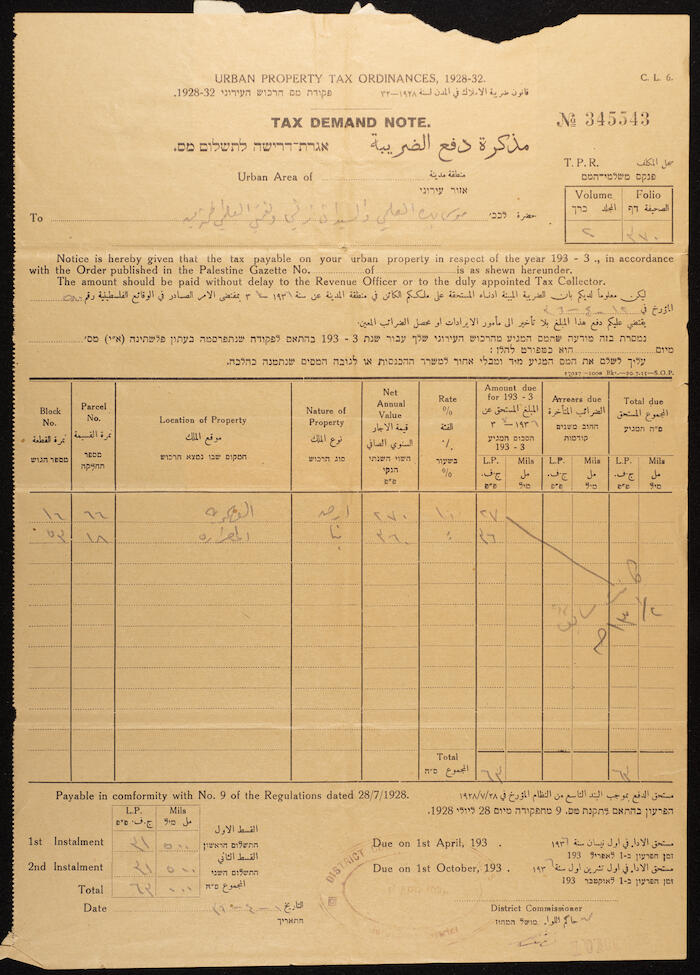 URBAN PROPERTY TAX ORDINANCES, 1928-32.
C. L. 6.
פקודת מס הרכוש העירוני 1928-32.
قانون ضريبة الاملاك في المدن لسنة ١٩٢٨—٣٢
TAX DEMAND NOTE.
№ 345543
אגרת-דרישה לתשלום מס.
مذكرة دفع الضريبة
T. P. R.
سجل المكلف
פנקס משלמי-המס
Urban Area of
منطقة مدينة
אזור עירוני
Volume
Folio
المجلد כרך
الصحيفة דף
٢
٣٧٠
To
حضرة לכב׳
Notice is hereby given that the tax payable on your urban property in respect of the year 193 - 3 ., in accordance
with the Order published in the Palestine Gazette No. of is as shewn hereunder.
The amount should be paid without delay to the Revenue Officer or to the duly appointed Tax Collector.
ليكن معلوماً لديكم بان الضريبة المبينة ادناه المستحقة على ملككم الكائن في منطقة المدينة عن سنة ١٩٣٦ بمقتضى الامر الصادر في الوقائع الفلسطينية رقم
المؤرخ في
يقتضي عليكم دفع هذا المبلغ بلا تأخير الى مأمور الايرادات او محصل الضرائب المعين.
נמסרת בזה מודעה שהמס המגיע מהרכוש העירוני שלך עבור שנת 3 - 193 בהתאם לפקודה שנתפרסמה בעתון פלשתינה (א״י) מס׳
מיום הוא כמפורט להלן:
עליך לשלם את המס המגיע מיד ומבלי אחור למשרד ההכנסות או לגובה המסים שנתמנה כהלכה.
Block No.
نمرة القطعة
מספר הגוש
Parcel No.
نمرة القسيمة
מספר החלקה
Location of Property
موقع الملك
המקום שבו נמצא הרכוש
Nature of Property
نوع الملك
סוג הרכוש
Net Annual Value
قيمة الايجار السنوي الصافي
השווי השנתי הנקי
Rate %
الفئة ٪
בשעור %
Amount due for 193 - 3
المبلغ المستحق عن ١٩٣٦
הסכום המגיע 193 - 3
Arrears due
الضرائب المتأخرة
החוב משנים קודמות
Total due
المجموع المستحق
ס״ה המגיע
L.P. Mils L.P. Mils L.P. Mils
١٦ ٦٦ ارض ٢٧٠ ١٠ ٢٧
٥٣ ١٨ المصراره بنا ٣٦٠ ״ ٣٦
Total
المجموع ס״ה
٦٣ ٦٣
Payable in conformity with No. 9 of the Regulations dated 28/7/1928.
مستحق الدفع بموجب البند التاسع من النظام المؤرخ في ١٩٢٨/٧/٢٨
הפרעון בהתאם לתקנת מס. 9 מהפקודה מיום 28 ליולי 1928.
L.P. Mils
1st Instalment ٣١ ٥٠٠
القسط الاول
התשלום הראשון
2nd Instalment ٣١ ٥٠٠
القسط الثاني
התשלום השני
Total ٦٣ ٠٠٠
المجموع ס״ה
Due on 1st April, 193 .
مستحق الاداء في اول نيسان سنة ١٩٣٦
זמן הפרעון ב-1 לאפריל 193
Due on 1st October, 193 .
مستحق الاداء في اول تشرين اول سنة ١٩٣٦
זמן הפרעון ב-1 לאוקטובר 193
Date
التاريخ
התאריך
DISTRICT
District Commissioner
حاكم اللواء מושל המחוז